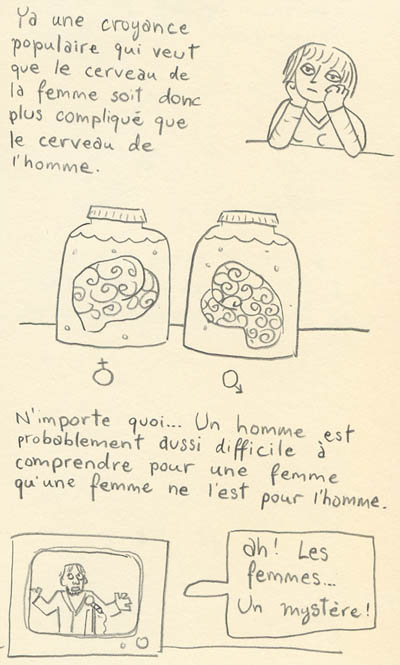 Ya une croyance
populaire qui veut
que le cerveau de
la femme soit donc
plus compliqué que
le cerveau de
l'homme.
N'importe quoi... Un homme est
probablement aussi difficile à
comprendre pour une femme
qu'une femme ne l'est pour l'homme.
ah! Les
femmes...
Un mystère!